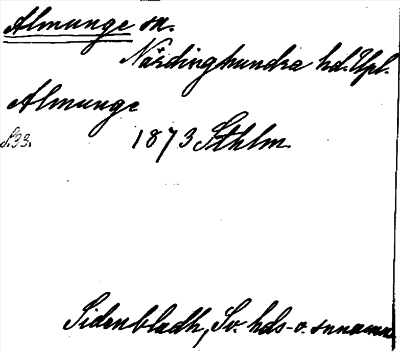 Almunge sn.
Närdinghundra hd. Upl.
Almunge
S. 33. 1873 Sthlm
Sidenbladh, Sv. hds- o. snnamn